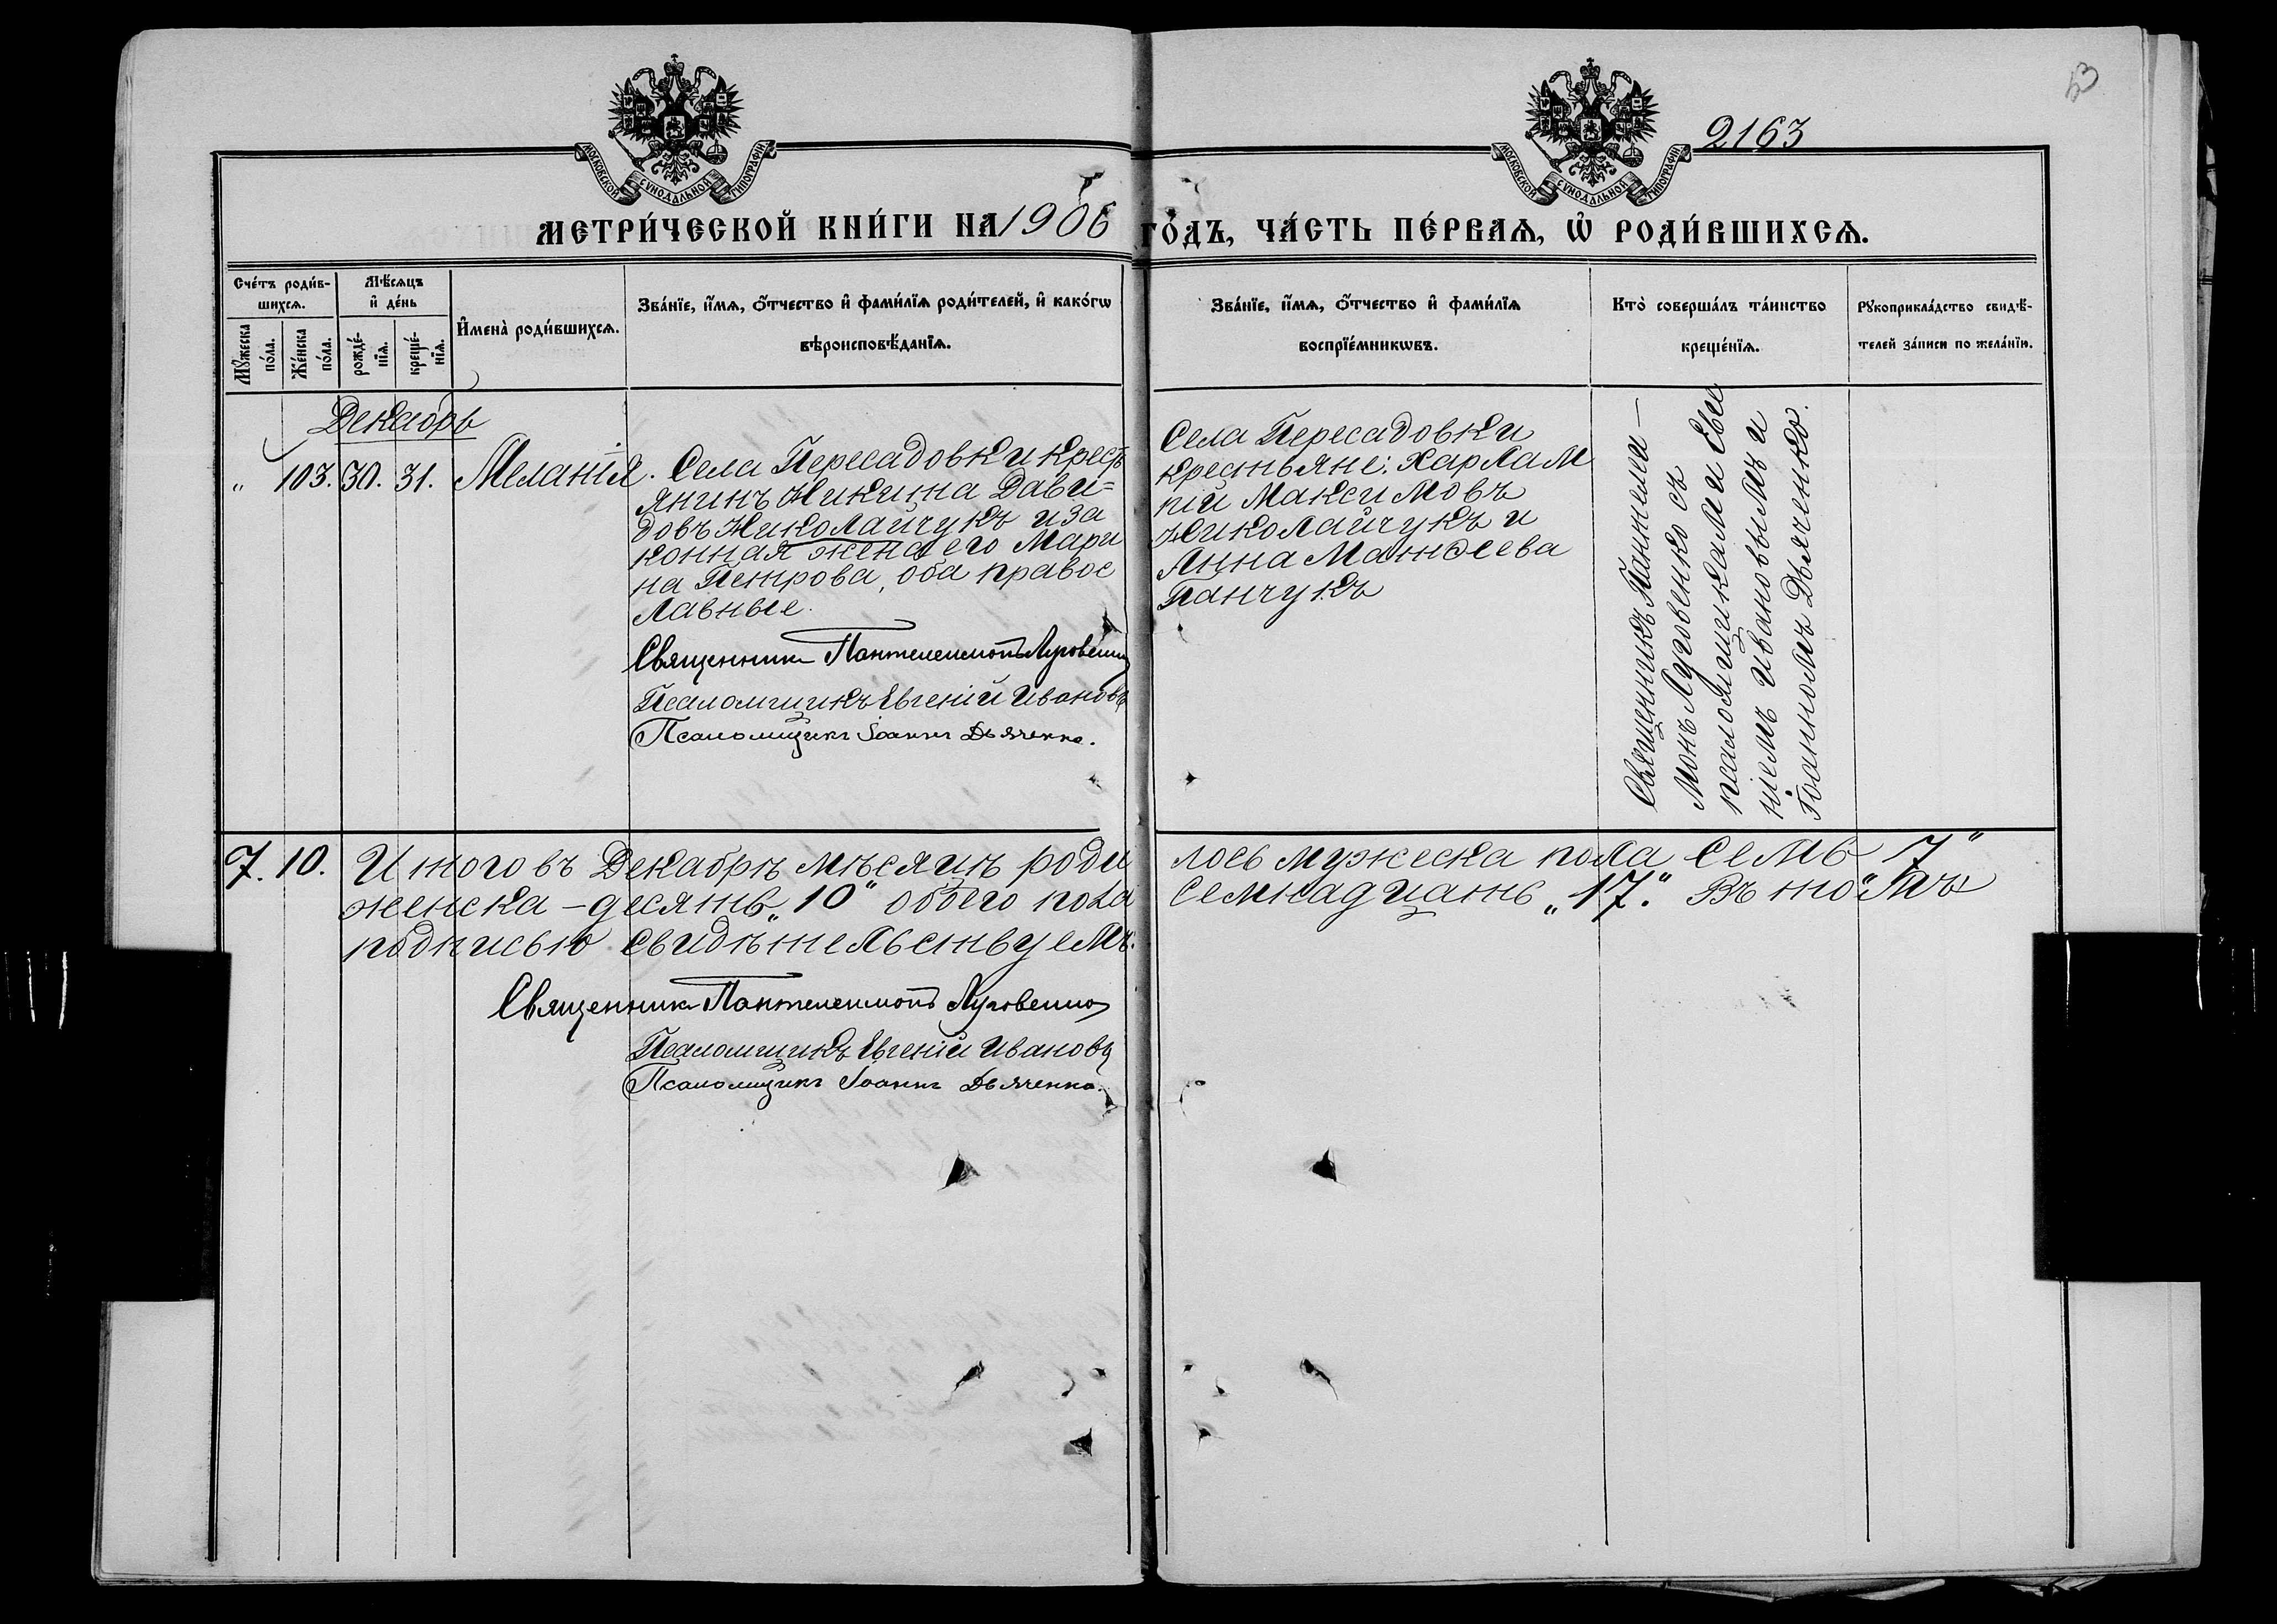 53
2163
МОСКОВСКОЙ СѴНОДАЛЬНОЙ ТИПОГРАФІИ
МОСКОВСКОЙ СѴНОДАЛЬНОЙ ТИПОГРАФІИ
МЕТРИ́ЧЕСКОЙ КНИ́ГИ НА 1906 ГО́ДЪ, ЧА́СТЬ ПЕ́РВАѦ, Ѡ҆ РОДИ́ВШИХСѦ.
Сче́тъ роди́в-
шихсѧ.
Мꙋ́жеска
по́ла.
Же́нска
по́ла.
Мѣ́сѧцъ
и҆ де́нь
рожде́-
нїѧ.
креще́-
нїѧ.
И҆мена̀ роди́вшихсѧ.
Зва́нїе, и҆́мѧ, ѻ҆́тчество и҆ фами́лїѧ роди́телей, и҆ како́гѡ
вѣроисповѣ́данїѧ.
Зва́нїе, и҆́мѧ, ѻ҆́тчество и҆ фами́лїѧ
воспрїе́мникѡвъ.
Кто̀ соверша́лъ та́инство
креще́нїѧ.
Рꙋкоприкла́дство свидѣ́-
телей за́писи по жела́нїю.
Декабрь
" 103. 30. 31. Меланія.
Села Пересадовки крестъ
янинъ Никита Дави=
довъ Николайчукъ и за
конная жена его Мари
на Петрова, оба правос
лавные.
Священникъ Пантелеимонъ Луговенко
Псаломщикъ Евгеній Ивановъ
Псаломщикъ Іоаннъ Дьяченко.
Села Пересадовки
крестьяне: Харлам
пій Максимовъ
Николайчукъ и
Анна Матѳеева
Панчукъ
Священникъ Пантелеи-
монъ Луговенко съ
псаломщиками Евге
ніемъ Ивановымъ и
Іоанномъ Дьяченко.
7. 10. Итого въ Декабрѣ мѣсяцѣ роди лось мужеска пола семь "7"
женска - десять "10" обоего пола семнадцать "17". Въ томъ
подписью свидѣтельствуемъ:
Священникъ Пантелеимонъ Луговенко
Псаломщикъ Евгеній Ивановъ
Псаломщикъ Іоаннъ Дьяченко.